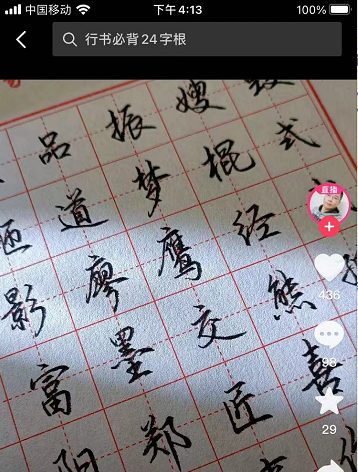 中国移动 下午4:13 100%
行书必背24字根
嫂
品 振 棍 式
道 梦 经
影 廖 鹰 熊
富 墨 交 喜
郑 匠
直播
436
98
29